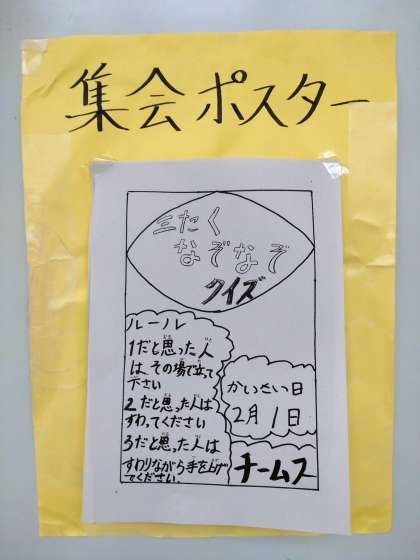 集会ポスター
三たく
なぞなぞ
クイズ
ルール
1だと思った人
は、その場で立って
下さい
2だと思った人は
すわってください
3だと思った人は
すわりながら手を上げ
てください.
かいさい日
2月1日
チームス